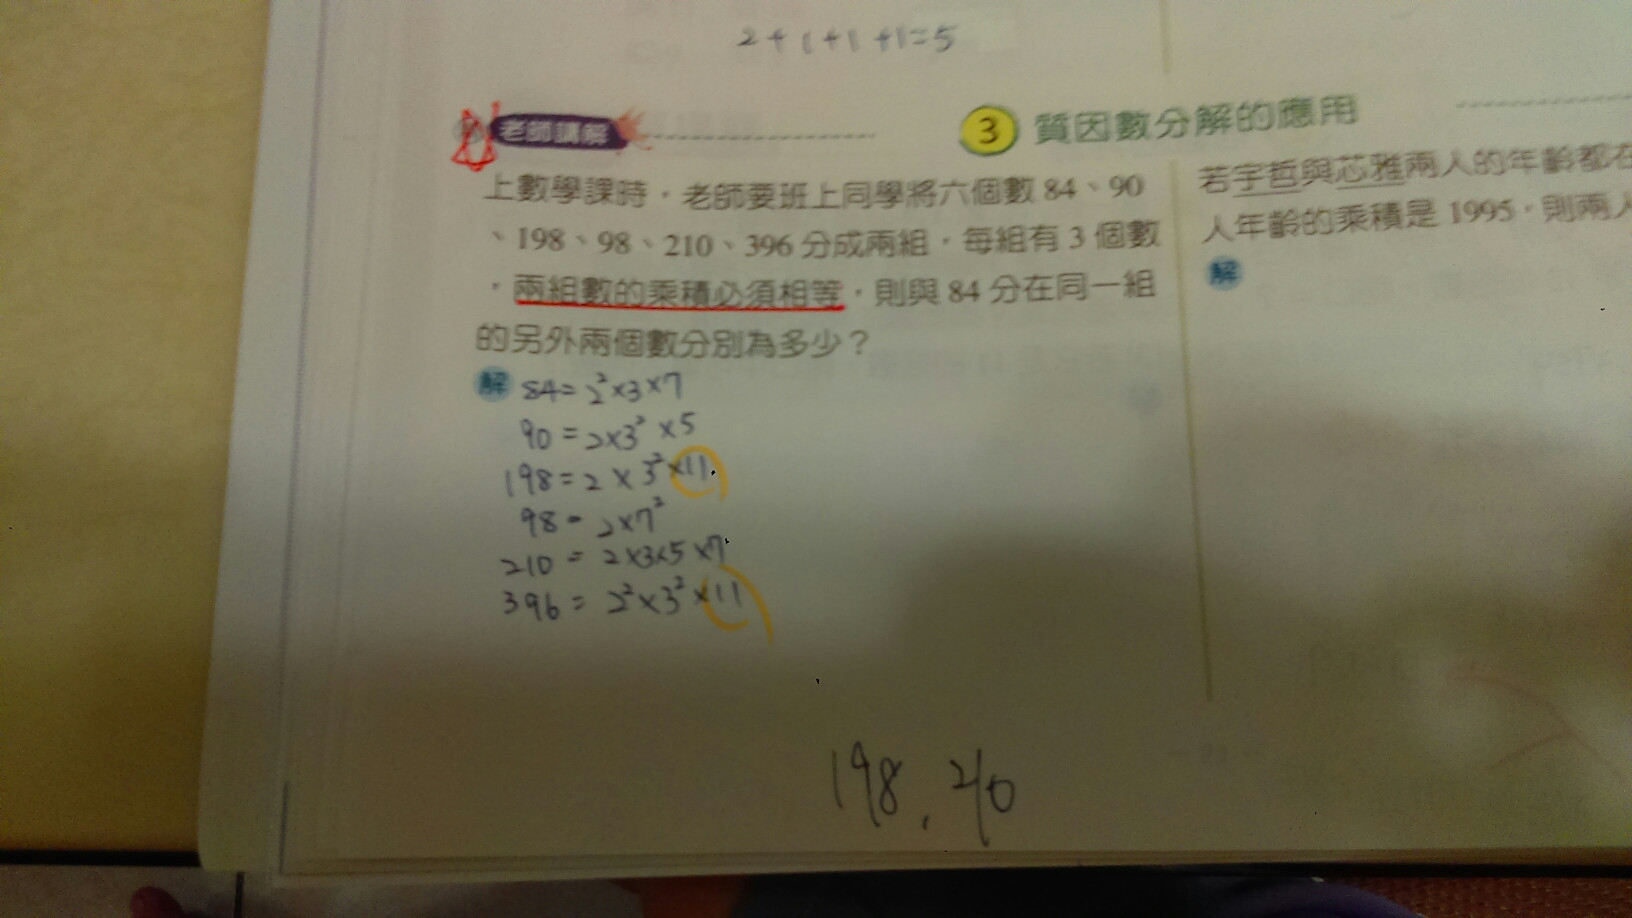 2+1+1+1=5
老師講解
3 質因數分解的應用
上數學課時，老師要班上同學將六個數 84、90
、198、98、210、396 分成兩組，每組有 3 個數
，兩組數的乘積必須相等，則與 84 分在同一組
的另外兩個數分別為多少？
解 84=2²×3×7
90=2×3²×5
198=2×3²×11
98=2×7²
210=2×3×5×7
396=2²×3²×11
198, 210
若宇哲與芯雅兩人的年齡都在
人年齡的乘積是 1995，則兩人
解